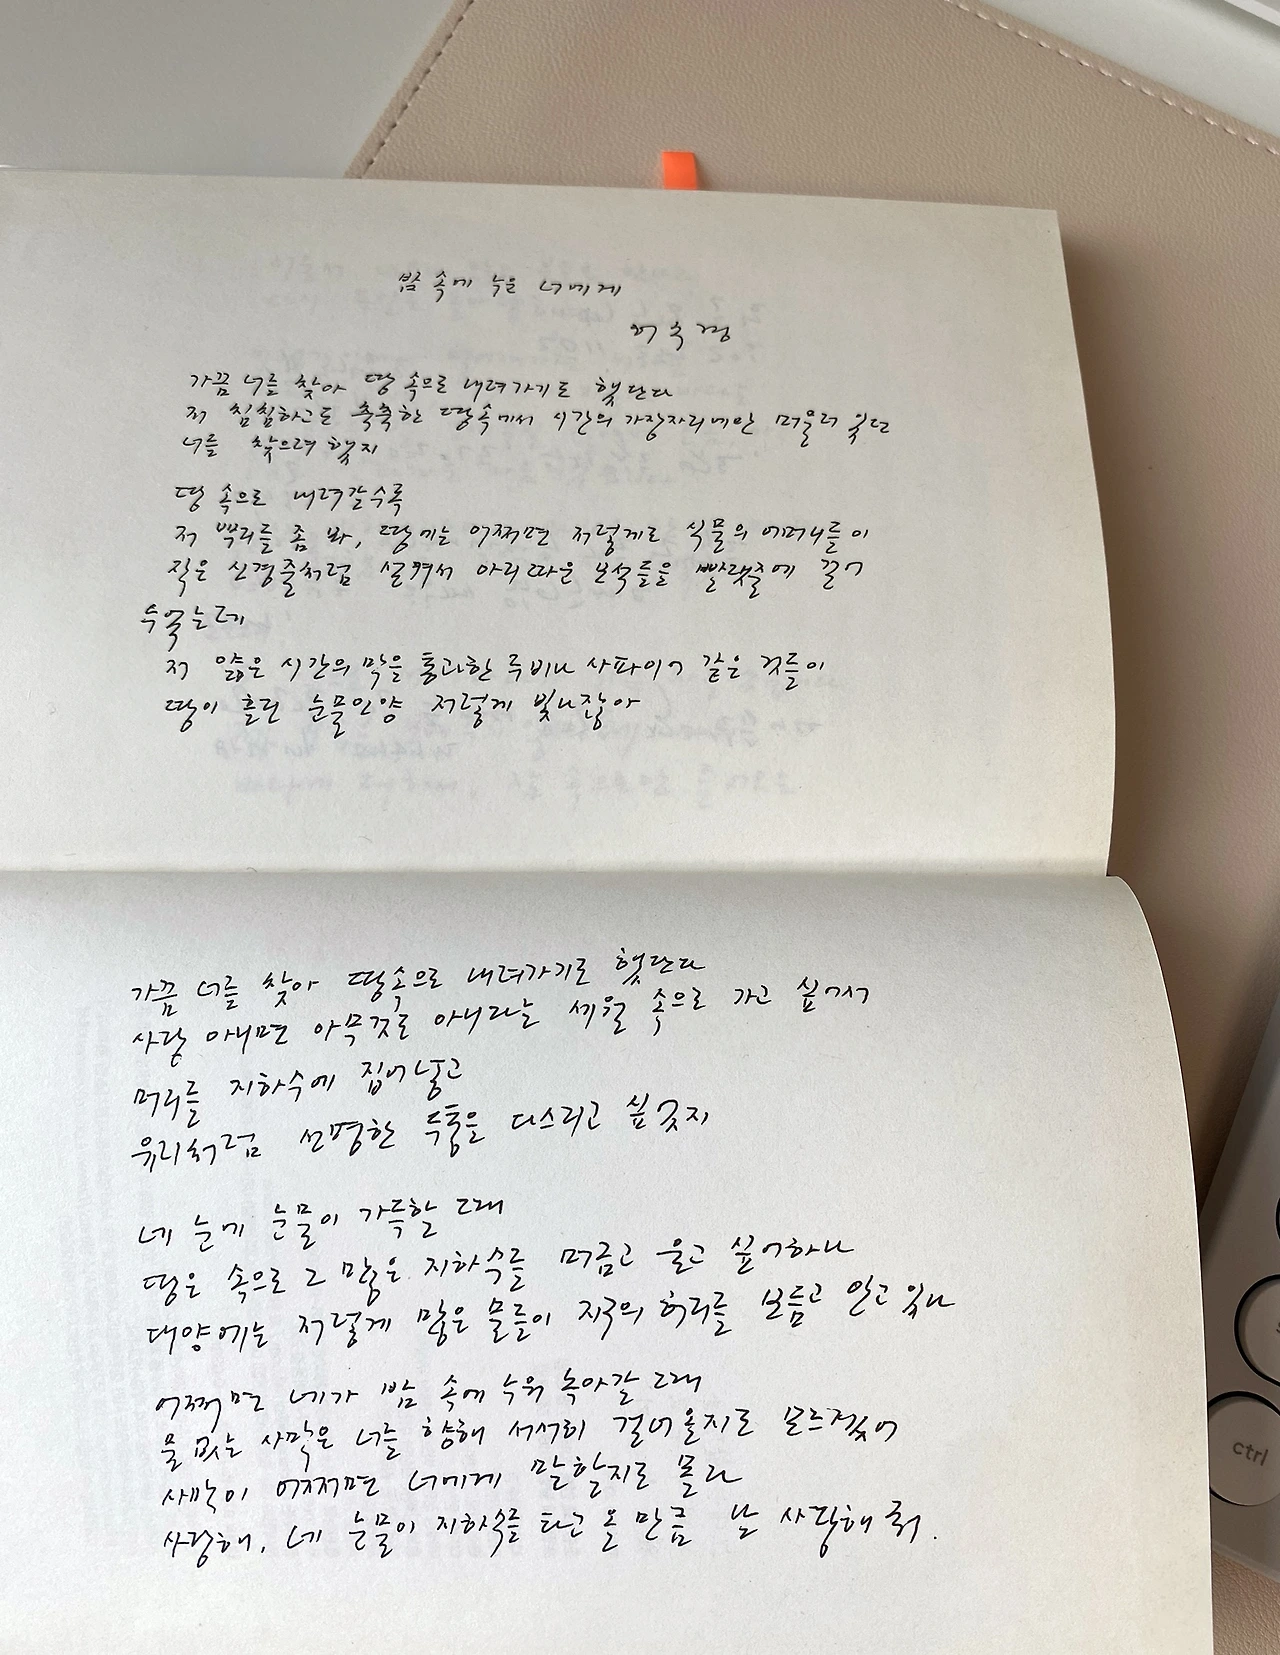 밤 속에 누운 너에게
허수경
가끔 너를 찾아 땅 속으로 내려가기도 했단다
저 침침하고도 축축한 땅속에서 시간의 가장자리에만 머물러 있던
너를 찾으려 했지
땅 속으로 내려갈수록
저 뿌리를 좀 봐, 땅에는 어쩌면 저렇게도 식물의 어머니들이
작은 신경줄처럼 설켜서 아리따운 보석들을 빨랫줄에 걸어
두었는데
저 얇은 시간의 막을 통과한 루비나 사파이어 같은 것들이
땅이 흘린 눈물인양 저렇게 빛나잖아
가끔 너를 찾아 땅속으로 내려가기도 했단다
사랑 아니면 아무것도 아니라는 세월 속으로 가고 싶어서
머리를 지하수에 집어넣고
유리처럼 선명한 두통을 다스리고 싶었지
네 눈에 눈물이 가득할 때
땅은 속으로 그 많은 지하수를 머금고 울고 싶어하나
대양에는 저렇게 많은 물들이 지구의 허리를 보듬고 안고 있나
어쩌면 네가 밤 속에 누워 녹아갈 때
물 없는 사막은 너를 향해 서서히 걸어올지도 모르겠어
사막이 어쩌면 너에게 말할지도 몰라
사랑해, 네 눈물이 지하수를 타고 올 만큼 날 사랑해 줘.
ctrl